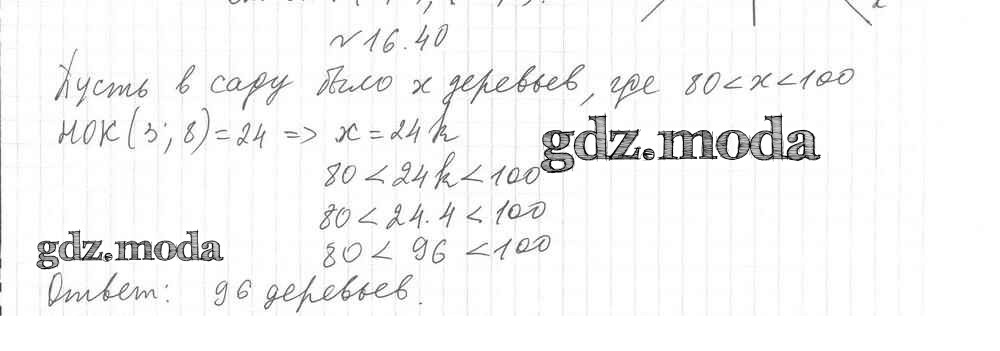 №16.40
Пусть в саду было x деревьев, где 80<x<100
НОК(3; 8)=24 => x=24k
gdz.moda
80<24k<100
80<24·4<100
80<96<100
gdz.moda
Ответ: 96 деревьев.